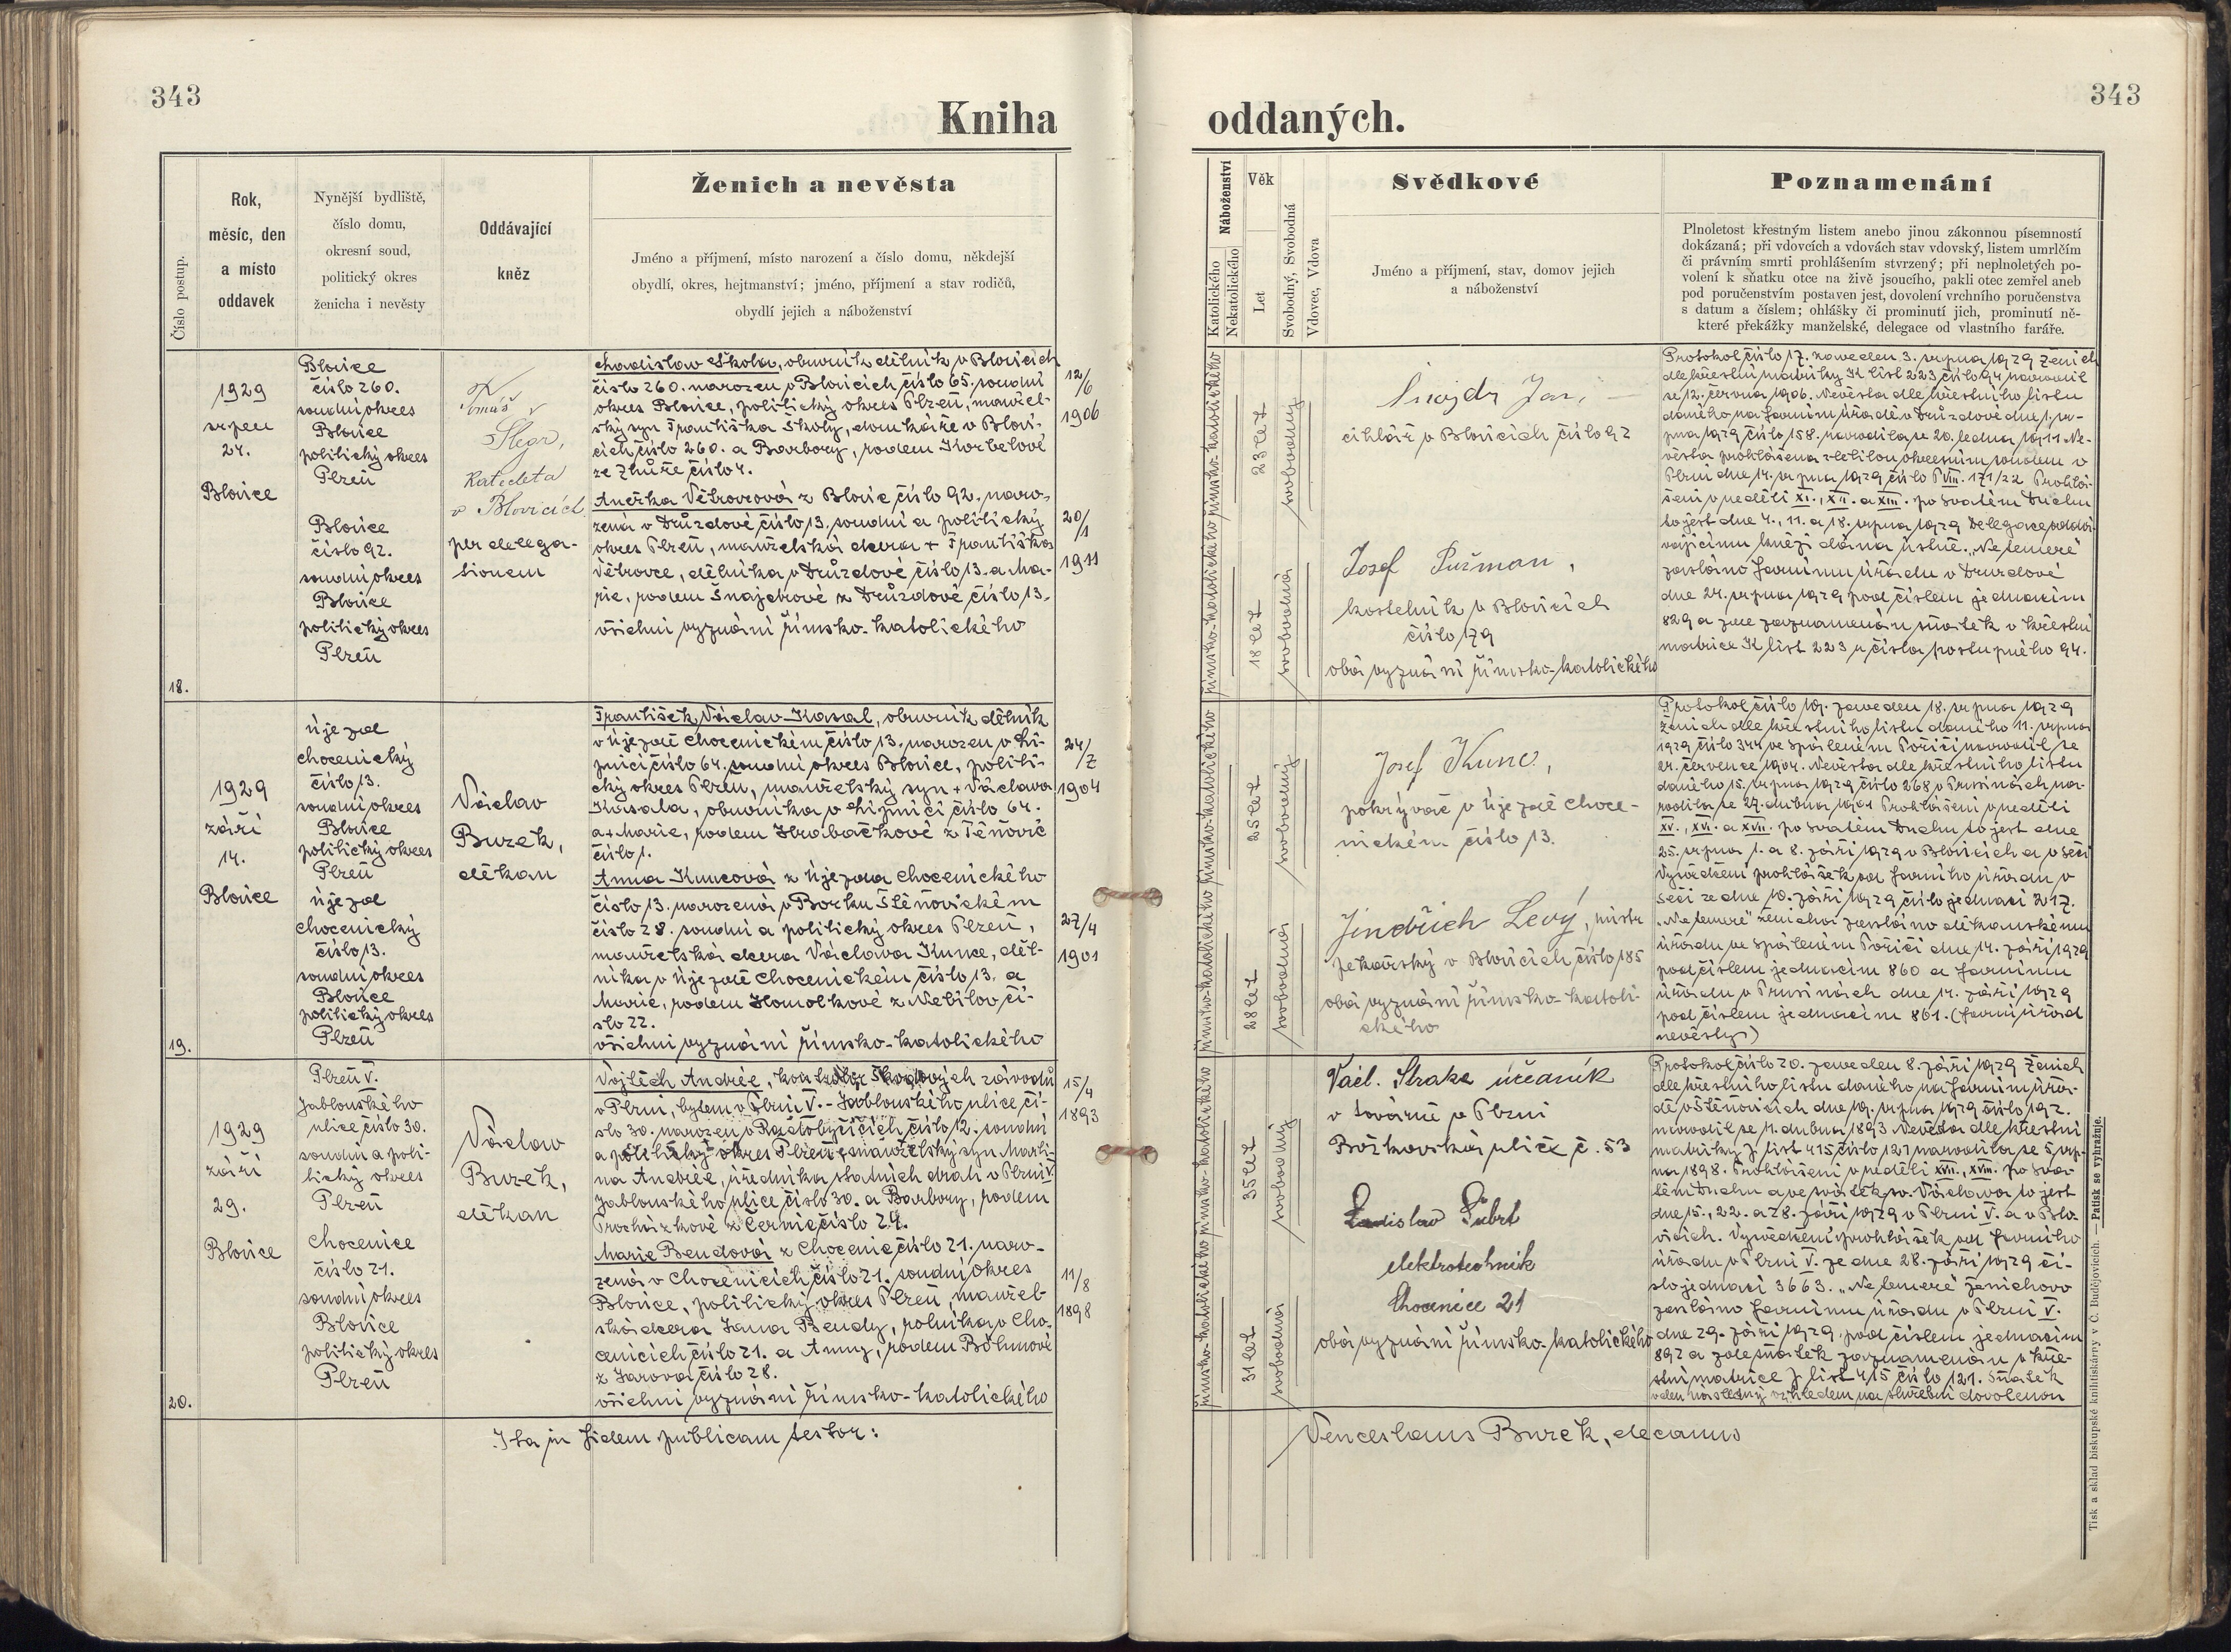 343
Kniha
Číslo postup.
Rok,
měsíc, den
a místo
oddavek
Nynější bydliště,
číslo domu,
okresní soud,
politický okres
ženicha i nevěsty
Oddávající
kněz
Ženich a nevěsta
Jméno a příjmení, místo narození a číslo domu, někdejší
obydlí, okres, hejtmanství; jméno, příjmení a stav rodičů,
obydlí jejich a náboženství
18.
1929
srpen
24.
Blovice
Blovice
číslo 260.
soudní okres
Blovice
politický okres
Plzeň
Blovice
číslo 92.
soudní okres
Blovice
politický okres
Plzeň
Tomáš
Šlegr,
Katecheta
v Blovicích
per delega-
tionem
Ladislav Škola, obuvník dělník v Blovicích
číslo 260. narozen v Blovicích číslo 65. soudní
okres Blovice, politický okres Plzeň, manžel-
ský syn Františka Školy, domkáře v Blovi-
cích číslo 260. a Barbory, rodem Korbelové
ze Zhůře číslo 4.
Anežka Větrovcová z Blovic číslo 92. naro-
zená v Druzdové číslo 13. soudní a politický
okres Plzeň, manželská dcera + Františka
Větrovce, dělníka v Druzdové číslo 13. a Ma-
rie, rodem Šnajdrové z Druzdové číslo 13.
všichni vyznání římsko-katolického
12/6
1906
20/1
1911
19.
1929
září
14.
Blovice
Újezd
chocenický
číslo 13.
soudní okres
Blovice
politický okres
Plzeň
Újezd
chocenický
číslo 13.
soudní okres
Blovice
politický okres
Plzeň
Václav
Burek,
děkan
František Václav Kasal, obuvník dělník
v Újezdě chocenickém číslo 13. narozen v Li-
pnici číslo 64. soudní okres Blovice, politi-
cký okres Plzeň, manželský syn + Václava
Kasala, obuvníka v Lipnici číslo 64.
a + Marie, rodem Hrabačkové z Těňovic
číslo 1.
Anna Kuncová z Újezda chocenického
číslo 13. narozená v Borku Štěnovickém
číslo 28. soudní a politický okres Plzeň,
manželská dcera Václava Kunce, děl-
níka v Újezdě chocenickém číslo 13. a
Marie, rodem Homolkové z Nebílov čí-
slo 22.
všichni vyznání římsko-katolického
24/7
1904
27/4
1901
20.
1929
září
29.
Blovice
Plzeň V.
Jablonského
ulice číslo 30.
soudní a poli-
tický okres
Plzeň
Chocenice
číslo 21.
soudní okres
Blovice
politický okres
Plzeň
Václav
Burek,
děkan
Vojtěch Andrée, kontrolor Škodových závodů
v Plzni, bytem v Plzni V. - Jablonského ulice čí-
slo 30. narozen v Radobyčicích číslo 12. soudní
a politický okres Plzeň, manželský syn Marti-
na Andrée, úředníka státních drah v Plzni V.
Jablonského ulice číslo 30. a Barbory, rodem
Procházkové z Černic číslo 24.
Marie Bendová z Chocenic číslo 21. naro-
zená v Chocenicích číslo 21. soudní okres
Blovice, politický okres Plzeň, manžel-
ská dcera Jana Bendy, rolníka v Cho-
cenicích číslo 21. a Anny, rodem Böhmové
z Jarova číslo 28.
všichni vyznání římsko-katolického
15/4
1893
11/8
1898
Ita in fidem publicam testor:
343
oddaných.
Náboženství
Katolického
Nekatolického
Věk
Let
Svobodný, Svobodná
Vdovec, Vdova
Svědkové
Jméno a příjmení, stav, domov jejich
a náboženství
Poznamenání
Plnoletost křestným listem anebo jinou zákonnou písemností
dokázaná; při vdovcích a vdovách stav vdovský, listem umrlčím
či právním smrti prohlášením stvrzený; při neplnoletých po-
volení k sňatku otce na živě jsoucího, pakli otec zemřel aneb
pod poručenstvím postaven jest, dovolení vrchního poručenstva
s datum a číslem; ohlášky či prominutí jich, prominutí ně-
které překážky manželské, delegace od vlastního faráře.
římsko-katolického
23 let
svobodný
římsko-katolického
18 let
svobodná
Jan,
cihlář v Blovicích číslo 92
Josef Pužman,
kostelník v Blovicích
číslo 179
oba vyznání římsko-katolického
Protokol číslo 17. zaveden 3. srpna 1929 Ženich
dle křestní matriky K list 223 číslo 94 narodil
se 12. června 1906. Nevěsta dle křestního listu
daného na farním úřadě v Druzdové dne 1. sr-
pna 1929 číslo 158. narodila se 20. ledna 1911. Ne-
věsta prohlášena zletilou okresním soudem v
Plzni dne 14. srpna 1929 číslo P VIII. 171/22 Prohlá-
šení v neděli XI., XII. a XIII. po svatém Duchu
to jest dne 4., 11. a 18. srpna 1929 Delegace oddá-
vajícímu knězi dána ústně. „Ne temere"
zasláno farnímu úřadu v Druzdové
dne 24. srpna 1929 pod číslem jednacím
829 a zde zaznamenán sňatek v křestní
matrice K list 223 u čísla postupného 94.
římsko-katolického
25 let
svobodný
římsko-katolického
28 let
svobodná
Josef Kunc,
pokrývač v Újezdě choce-
nickém číslo 13.
Jindřich Levý, mistr
pekařský v Blovicích číslo 185
oba vyznání římsko-katoli-
ckého
Protokol číslo 19. zaveden 18. srpna 1929
Ženich dle křestního listu daného 11. srpna
1929 číslo 344 ve Spáleném Poříčí narodil se
24. července 1904. Nevěsta dle křestního listu
daného 15. srpna 1929 číslo 268 v Prusinách na-
rodila se 27. dubna 1901 Prohlášení v neděli
XV., XVI. a XVII. po svatém Duchu to jest dne
25. srpna 1. a 8. září 1929 v Blovicích a v Seči
Vysvědčení prohlášek od farního úřadu v
Seči ze dne 10. září 1929 číslo jednací 217.
„Ne temere" ženicha zasláno děkanskému
úřadu ve Spáleném Poříčí dne 14. září 1929
pod číslem jednacím 860 a farnímu
úřadu v Prusinách dne 14. září 1929
pod číslem jednacím 861. (farní úřad
nevěsty)
římsko-katolického
35 let
svobodný
římsko-katolického
31 let
svobodná
Václ. Straka úředník
v továrně v Plzni
Božkovská ulice č. 53
Ladislav Šubrt
elektrotechnik
Chocenice 21
oba vyznání římsko-katolického
Protokol číslo 20. zaveden 8. září 1929 Ženich
dle křestního listu daného na farním úřa-
dě v Štěnovicích dne 19. srpna 1929 číslo 192.
narodil se 11. dubna 1893 Nevěsta dle křestní
matriky J list 415 číslo 121 narodila se 5. srp-
na 1898. Prohlášení v neděli XVII., XVIII. po sva-
tém Duchu a ve svátek sv. Václava to jest
dne 15., 22. a 28. září 1929 v Plzni V. a v Blo-
vicích. Vysvědčení prohlášek od farního
úřadu v Plzni V. ze dne 28. září 1929 čí-
slo jednací 3663. „Ne temere" ženichovo
zasláno farnímu úřadu v Plzni V.
dne 29. září 1929 pod číslem jednacím
892 a zde sňatek zaznamenán v kře-
stní matrice J list 415 číslo 121. Sňatek
vzhledem na služební dovolenou
Venceslaus Burek, decanus
Tisk a sklad biskupské knihtiskárny v Č. Budějovicích. — Patisk se vyhražuje.